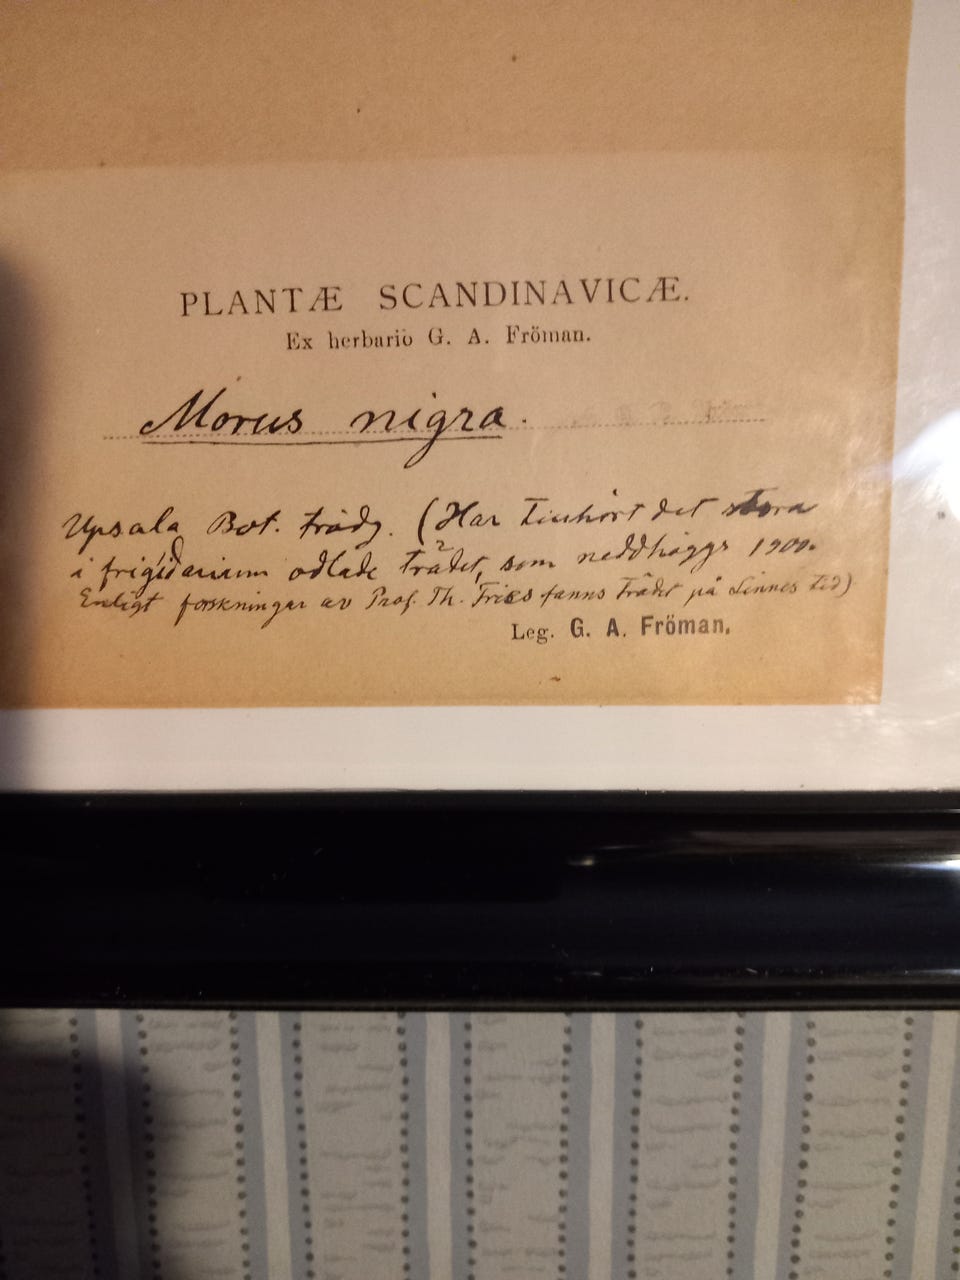 PLANTÆ SCANDINAVICÆ.
Ex herbario G. A. Fröman.
Morus nigra.
Upsala Bot. trädg. (Har tillhört det stora
i frigidarium odlade trädet, som nedhöggs 1900.
Enligt forskningar av Prof. Th. Fries fanns trädet på Linnés tid)
Leg. G. A. Fröman.